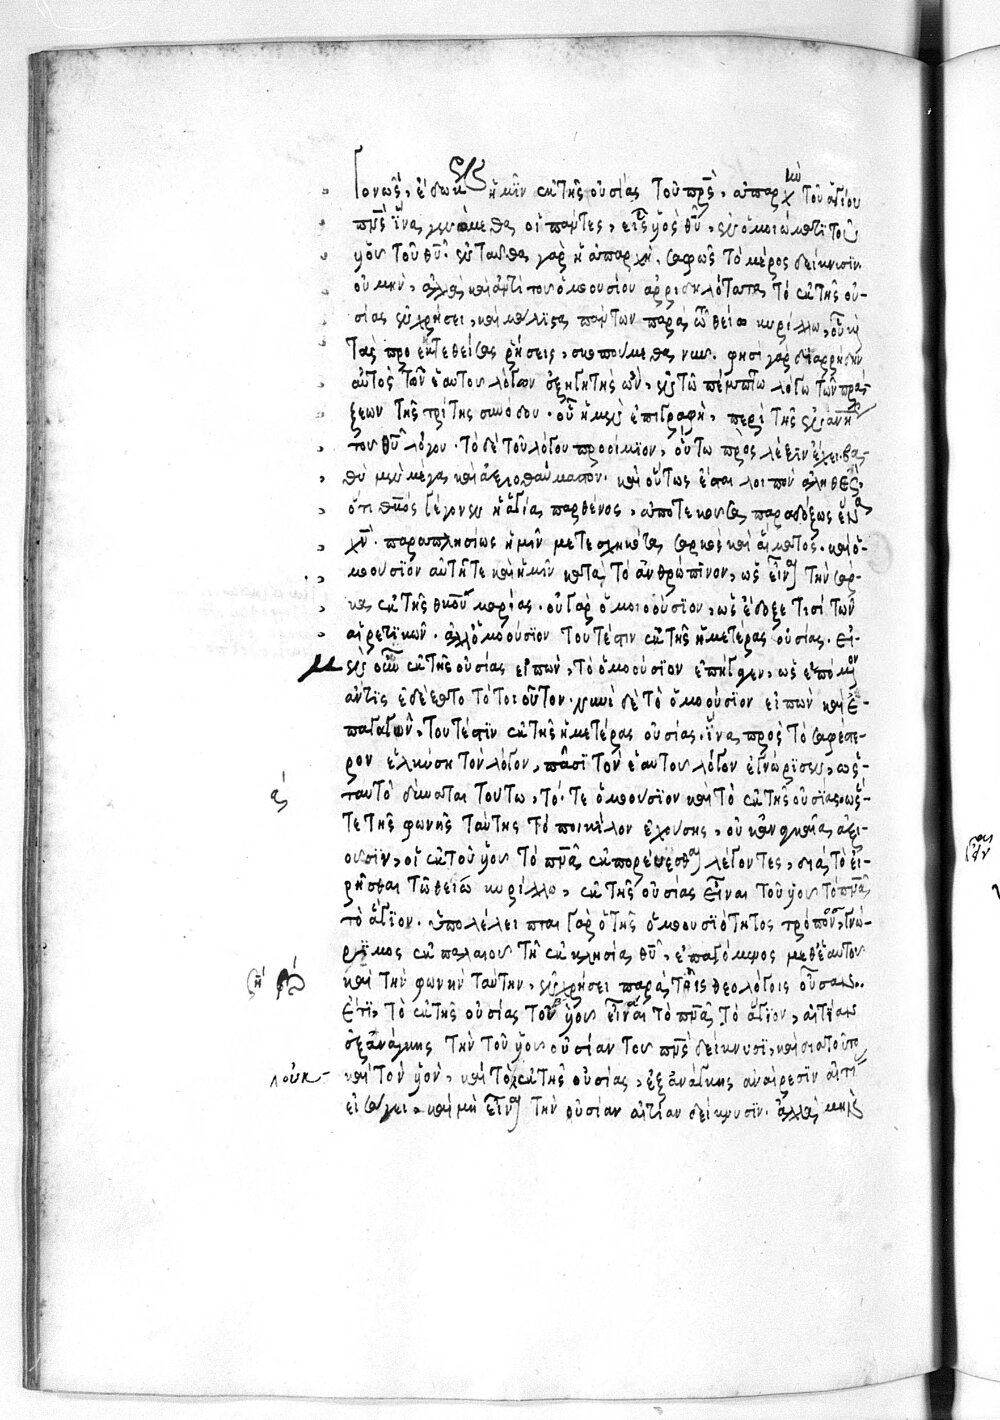 γονὼς, ἔδωκεν ἡμῖν ἐκ τῆς οὐσίας τοῦ πρς, ἀπαρχὴν τοῦ ἁγίου
πνς ἵνα γενώμεθα οἱ πάντες, εἰς υἱὸς θυ, ἐν ὁμοιώματι τοῦ
υἱοῦ τοῦ θυ. ἐνταῦθα γὰρ ἡ ἀπαρχὴ, σαφῶς τὸ μέρος δείκνυσιν.
οὐ μὴν, ἀλλὰ καὶ ἀντὶ τοῦ ὁμοουσίου ἀρριδηλότατα, τὸ ἐκ τῆς οὐ-
σίας ἐν χρήσει, καὶ μάλιστα πάντων παρὰ τῶ θείω κυρίλλω, οὗ καὶ
τὰς προεκτεθείσας ῥήσεις, σκοπούμεθα νῦν. φησὶ γὰρ διαρρήδην
αὐτὸς τῶν ἑαυτοῦ λόγων ἐξηγητὴς ὢν, ἐν τῶ πέμπτω λόγω τῶν πρά-
ξεων τῆς τρίτης συνόδου. οὗ ἡ μὲν ἐπιγραφὴ, περὶ τῆς ἐνανθ
του θυ λόγου. τὸ δὲ τοῦ λόγου προοίμϊον, οὕτω πρὸς λέξϊν ἔχει. βα-
θὺ μὲν μέγα καὶ ἀξιοθαύμαστον. καὶ οὕτως ἔσται λοιπὸν ἀληθὲς,
ὅτι θκος γέγονεν ἡ ἁγία παρθένος, ἀποτεκοῦσα παραδόξως ἕνα
χν. παραπλησίως ἡμῖν μετεσχηκότα σαρκὸς καὶ αἵματος. καὶ ὁ-
μοούσϊον αὐτῆ τε καὶ ἡμῖν κατὰ τὸ ἀνθρώπινον, ὡς εἶναι τὴν σάρ-
κα ἐκ τῆς θκου μαρίας. οὐ γὰρ ὁμοιούσϊον, ὡς ἔδοξέ τισι τῶν
αἱρετϊκῶν. ἀλλ' ὁμοούσϊον τουτέστιν ἐκ τῆς ἡμετέρας οὐσίας. εἰ-
μὲν οὖν ἐκ τῆς οὐσίας εἰπὼν, τὸ ὁμοούσϊον ἐπήγαγεν, ὡς ἑπόμενον
ἄν τις ἐδέξατο τὸ τοιοῦτον. νυνὶ δὲ τὸ ὁμοούσϊον εἰπὼν καὶ ἐ-
παγαγὼν, τουτέστϊν ἐκ τῆς ἡμετέρας οὐσίας. ἵνα πρὸς τὸ σαφέστε-
ρον ἑλκύση τὸν λόγον, πᾶσϊ τὸν ἑαυτοῦ λόγον ἐγνώρϊσεν, ὡς-
ταυτὸ δύναται τούτω, τό, τε ὁμοούσϊον καὶ τὸ ἐκ τῆς οὐσίας. ὥς-
τε τῆς φωνῆς ταύτης τὸ ποικίλον ἐχούσης, οὐκ ἀναγκαῖα ἀξι-
οῦσϊν, οἱ ἐκ τοῦ υἱοῦ τὸ πνα ἐκπορεύεσθαι λέγοντες, διὰ τὸ εἰ-
ρῆσθαι τῶ θείω κυρίλλω, ἐκ τῆς οὐσίας εἶναι τοῦ υἱοῦ τὸ πνα
τὸ ἅγϊον. ὑπολέλειπται γὰρ ὁ τῆς ὁμοουσϊότητος τρόπος, γνώ-
ρϊμος ἐκ παλαιοῦ τῆ ἐκκλησία θυ, ἐπαγόμενος μεθ' ἑαυτοῦ
καὶ τὴν φωνὴν ταύτην, ἐν χρήσει παρὰ τοῖς θεολόγοις οὖσαν.
ἔτϊ, τὸ ἐκ τῆς οὐσίας τοῦ υἱοῦ εἶναι τὸ πνα τὸ ἅγϊον, αἰτίαν
ἐξανάγκης τὴν τοῦ υἱοῦ οὐσίαν τοῦ πνς δείκνυσϊ, καὶ διατοῦτο
καὶ τὸν υἱὸν, καὶ τὸ, ἐκ τῆς οὐσίας, ἐξανάγκης ἀναίρεσϊν αἰτί
εἰσάγει, καὶ μὴ εἶναι τὴν οὐσίαν αἰτίαν δείκνυσϊν. ἀλλὰ μὴν